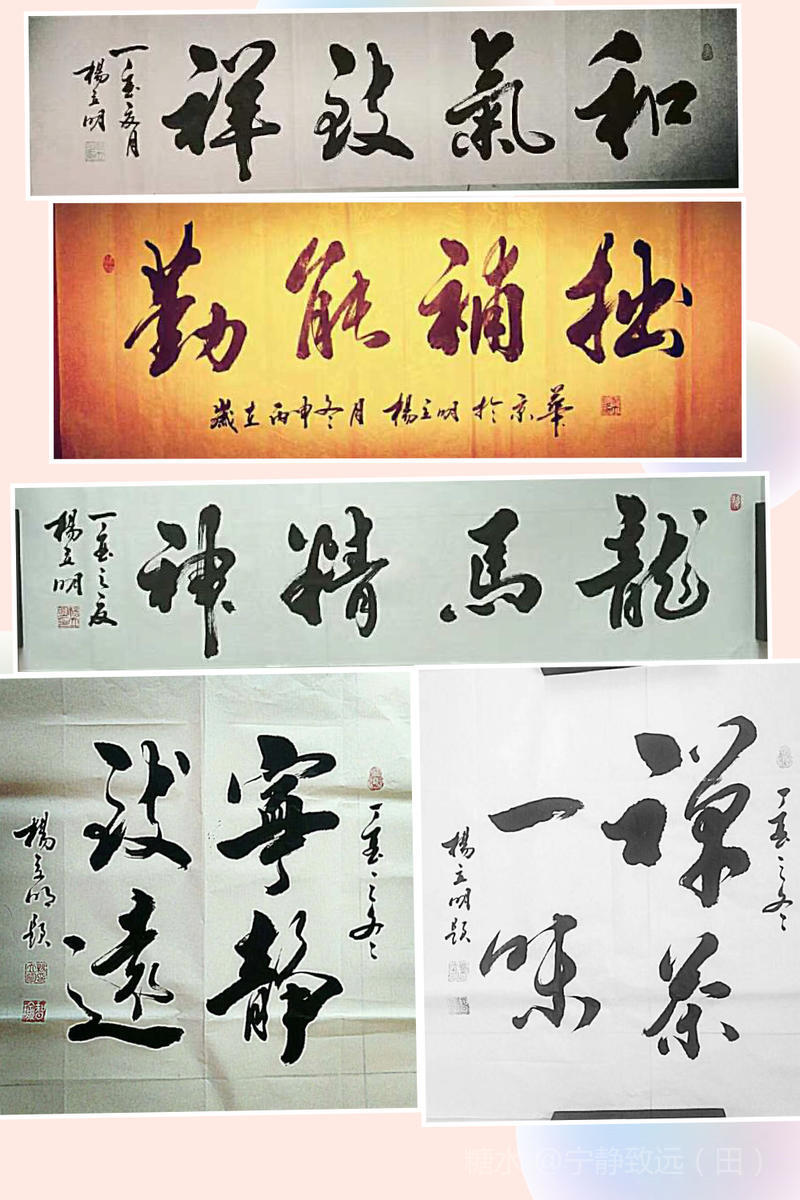 和氣致祥
丁酉夏月
楊立明
勤能補拙
歲在丙申冬月 楊立明於京華
龍馬精神
丁酉之夏
楊立明
丁酉之冬
寧靜
致遠
楊立明題
丁酉之冬
禅茶
一味
楊立明題
糖水 @宁静致远（田）